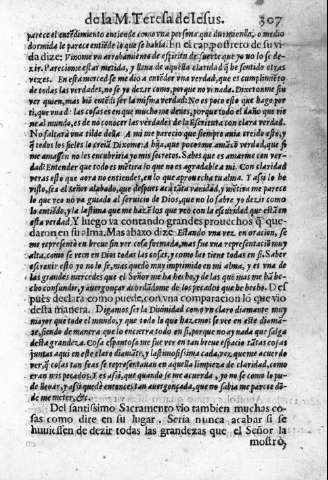 de la M. Teresa de Iesus. 307
parece el entẽdimiento entiende como vna persona que durmiendo, o medio
dormida le parece entiẽde lo que se habla. En el cap. postrero de su vi
da dize: Vinome vn arrobamiento de espiritu de suerte que yo no lo se de-
zir. Pareciome estar metida, y llena de aquella claridad q̃ he sentido otras
vezes. En esta merced se me dio a entẽder vna verdad, que es cumplimiẽto
de todas las verdades, no se yo dezir como, porque no vi nada. Dixeronme sin
ver quien, mas biẽ entẽdi ser la misma verdad: No es poco esto que hago por
ti, que vna d̃ las cosas es en que mucho me deues, porque todo el daño que vie
ne al mundo, es de no conocer las verdades de la Escritura con clara verdad.
No faltarà vna tilde della. A mi me parecio que siempre auia creido esto, y
q̃ todos los fieles lo creiã. Dixome: A hija, que pocos me amã cõ verdad, que si
me amassen no les encubriria yo mis secretos. Sabes que es amarme con ver-
dad? Entender que todo es mẽtira lo que no es agradable a mi. Con claridad
veras esto que aora no entiendes, en lo que aprouecha tu alma. Y assi lo he
visto, sea el señor alabado, que despues acà tãta vanidad, y mẽtira me parece
lo que veo no va guiado al seruicio de Dios, que no lo sabre yo dezir como
lo entiẽdo, y la lastima que me hazẽ los que veo con la escuridad que estã en
esta verdad. Y luego va contando grandes prouechos q̃ que-
daron en su alma. Mas abaxo dize: Estando vna vez en oracion, se
me representò en breue sin ver cosa formada, mas fue vna representaciõ muy
alta, como se veen en Dios todas las cosas, y como las tiene todas en si. Saber
escreuir esto yo no lo se, mas quedò muy imprimido en mi alma, y es vna de
las grandes mercedes que el Señor me ha hecho, y de las que mas me hã he-
cho confundir, y auergonçar acordãdome de los pecados que he hecho. Des
pues declara como puede, con vna comparacion lo que vio
desta manera. Digamos ser la Diuinidad como vn claro diamante muy
mayor que todo el mundo, y que todo lo que hazemos se vee en este diamã-
te, siendo de manera que lo encierra todo en si, porque no ay nada que salga
desta grandeza. Cosa espantosa me fue ver en tan breue espacio tãtas cosas
juntas aqui en este claro diamãte, y lastimosissima cada vez, que me acuerdo
ver, q̃ cosas tan feas se representauan en aquella limpieza de claridad, como
eran mis pecados. Y es assi, que quando se me acuerda, yo no se como lo pue-
do lleuar, y assi quedè entonces tan auergonçada, que no sabia me parece dõ-
de me meter, &c.
Del santissimo Sacramento vio tambien muchas co-
sas como dire en su lugar. Seria nunca acabar si se
huuiessen de dezir todas las grandezas que el Señor la
mostrò,